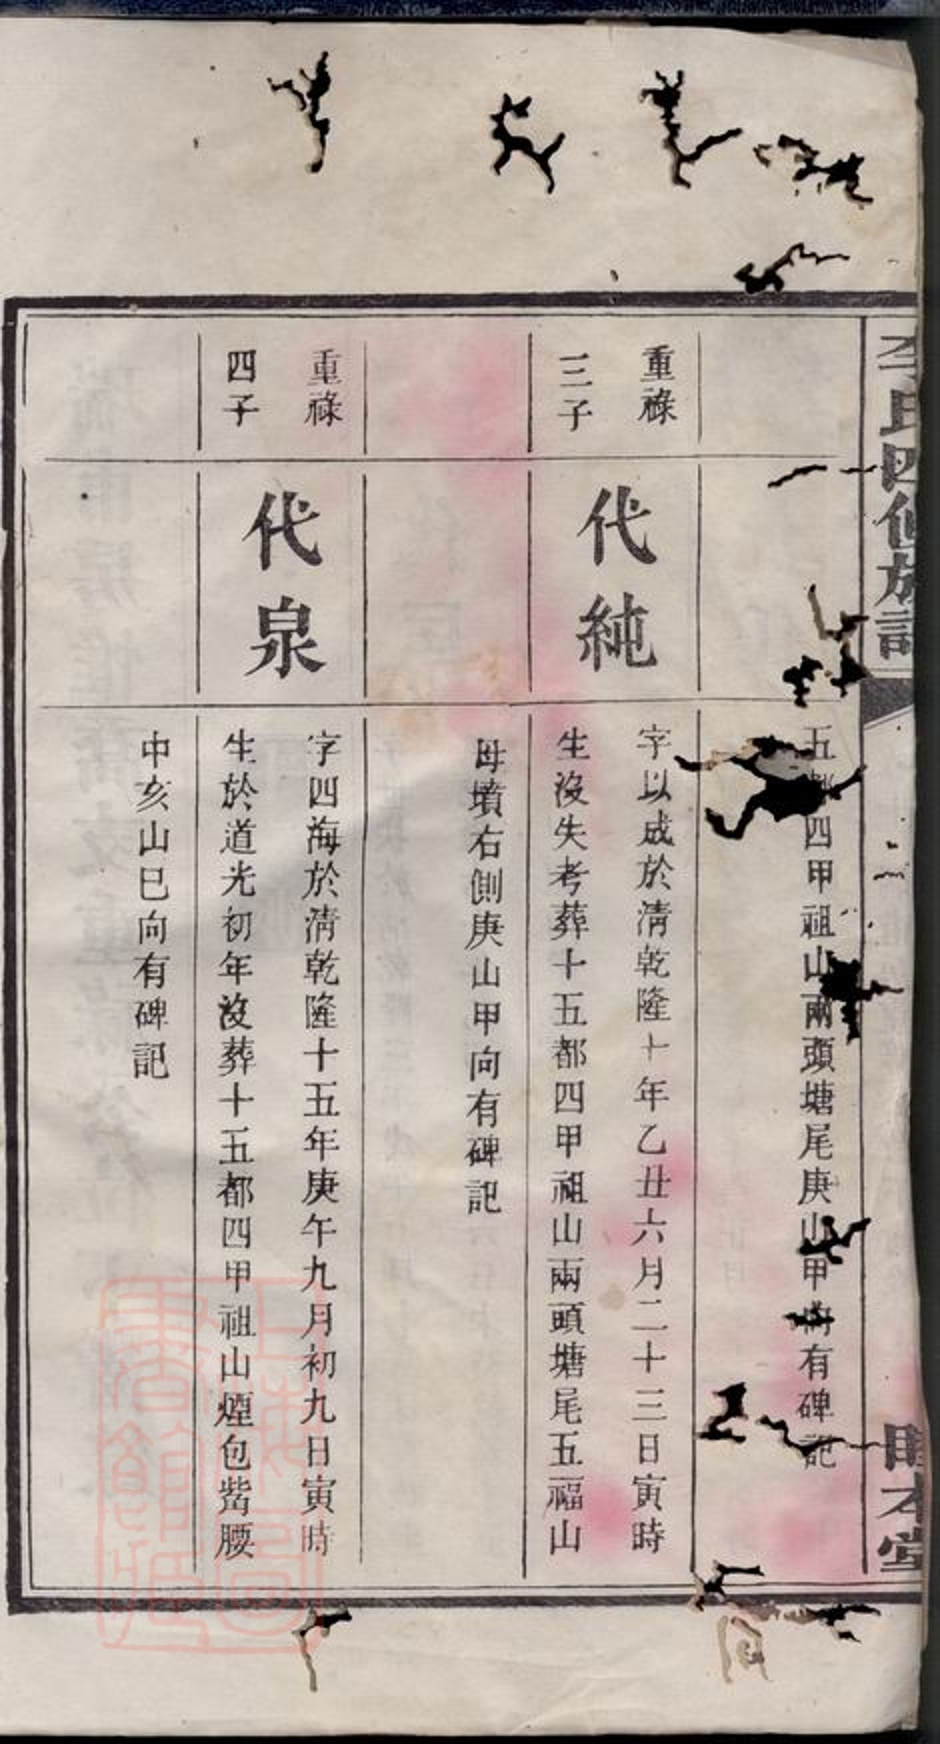 李氏四修族譜
五都四甲祖山兩頭塘尾庚山甲向有碑記
重祿
三子
代純
字以成於清乾隆十年乙丑六月二十三日寅時
生沒失考葬十五都四甲祖山兩頭塘尾五福山
母墳右側庚山甲向有碑記
重祿
四子
代泉
字四海於清乾隆十五年庚午九月初九日寅時
生於道光初年沒葬十五都四甲祖山煙包嵴腰
中亥山巳向有碑記
上海圖書館藏